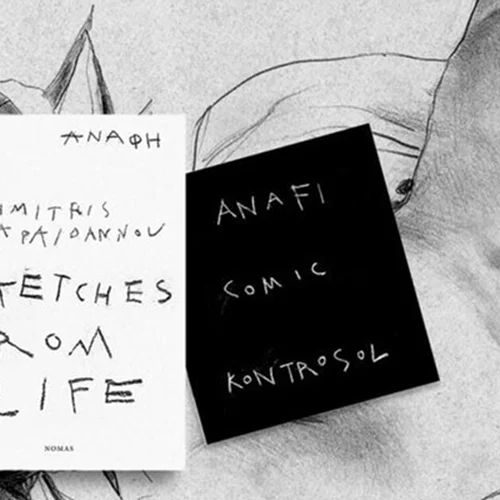 ΑΝΑΦΗ
IMITRIS
APAIOANNOU
KETCHES
ROM
LIFE
NOMAS
ANAFI
COMIC
KONTROSOL